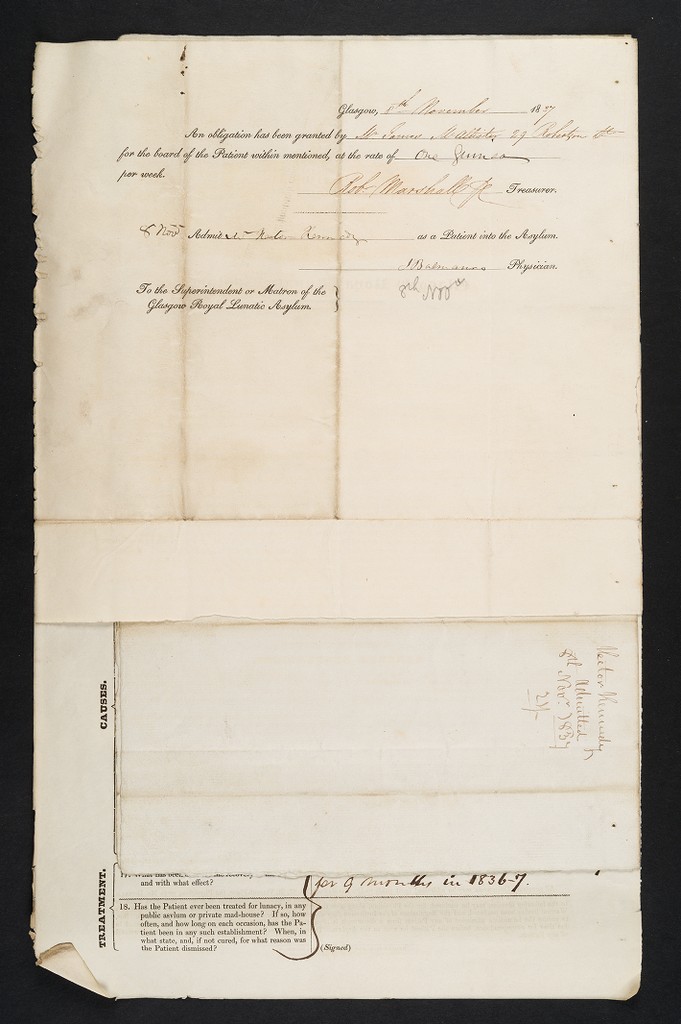 Glasgow, 8th November 1837
An obligation has been granted by Mr James McAllister 29 Robertson St
for the board of the Patient within mentioned, at the rate of One Guinea
per week.
Rob Marshall Jr Treasurer.
8 Novr Admit Mr Hector Kennedy as a Patient into the Asylum.
J Balmanno Physician.
8th Novr
To the Superintendent or Matron of the
Glasgow Royal Lunatic Asylum.
Hector Kennedy
Admitted
8th Novr 1837
21/-
CAUSES.
TREATMENT.
and with what effect?
for 9 months in 1836-7.
18. Has the Patient ever been treated for lunacy, in any
public asylum or private mad-house? If so, how
often, and how long on each occasion, has the Pa-
tient been in any such establishment? When, in
what state, and, if not cured, for what reason was
the Patient dismissed?
(Signed)